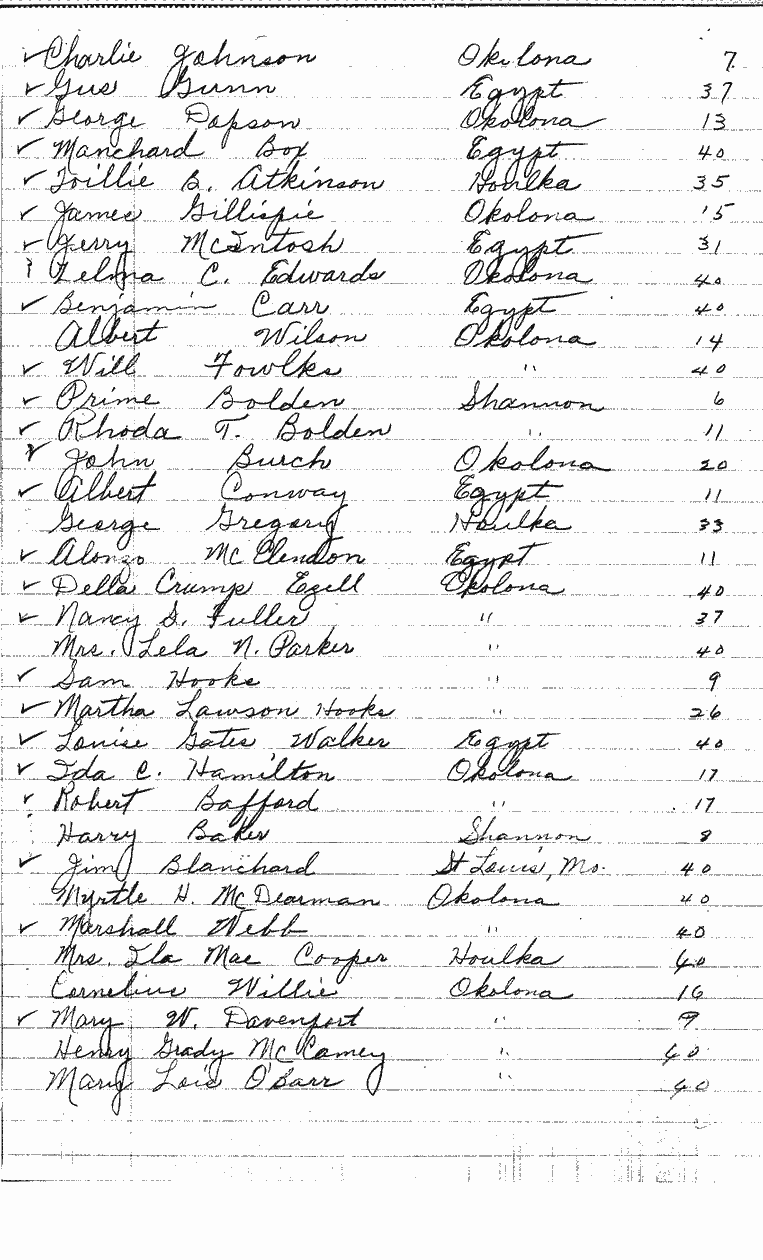 ✓ Charlie Johnson Okolona 7
✓ Gus Gunn Egypt 37
✓ George Dopson Okolona 13
✓ Manchard Box Egypt 40
✓ Toillie B. Atkinson Houlka 35
✓ James Gillispie Okolona 15
✓ Jerry McIntosh Egypt 31
Zelma C. Edwards Okolona 40
✓ Benjamin Carr Egypt 40
Albert Wilson Okolona 14
✓ Will Fowlks " 40
✓ Prime Bolden Shannon 6
✓ Rhoda T. Bolden " 11
✓ John Burch Okolona 20
✓ Albert Conway Egypt 11
George Gregory Houlka 33
✓ Alonzo McClendon Egypt 11
✓ Della Crump Ezell Okolona 40
✓ Nancy S. Fuller " 37
Mrs. Lela N. Parker " 40
✓ Sam Hooks " 9
✓ Martha Lawson Hooks " 26
✓ Louise Gates Walker Egypt 40
✓ Ida C. Hamilton Okolona 17
✓ Robert Bafford " 17
Harry Baker Shannon 8
✓ Jim Blanchard St Louis, Mo. 40
Myrtle H. McDearman Okolona 40
✓ Marshall Webb " 40
Mrs. Ila Mae Cooper Houlka 40
Cornelius Willie Okolona 16
✓ Mary W. Davenport " 9
Henry Grady McCamey " 40
Mary Lois O'Barr " 40